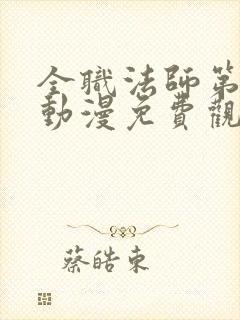 全職法師第
動漫免費觀
蔡皓東